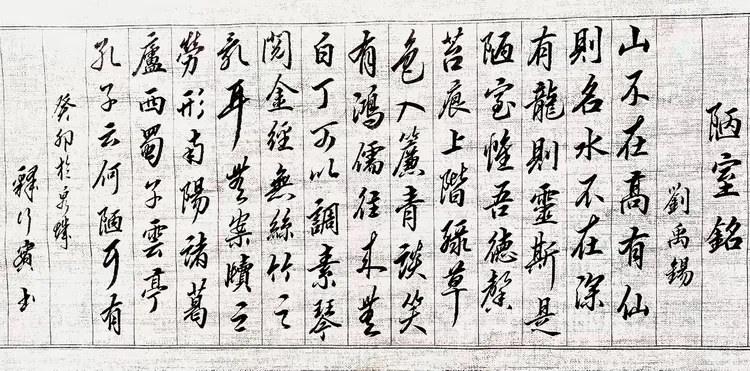 陋室銘
劉禹錫
山不在高有仙
則名水不在深
有龍則靈斯是
陋室惟吾德馨
苔痕上階綠草
色入簾青談笑
有鴻儒往來無
白丁可以調素琴
閱金經無絲竹之
亂耳無案牘之
勞形南陽諸葛
廬西蜀子雲亭
孔子云何陋有
癸卯於
釋行書